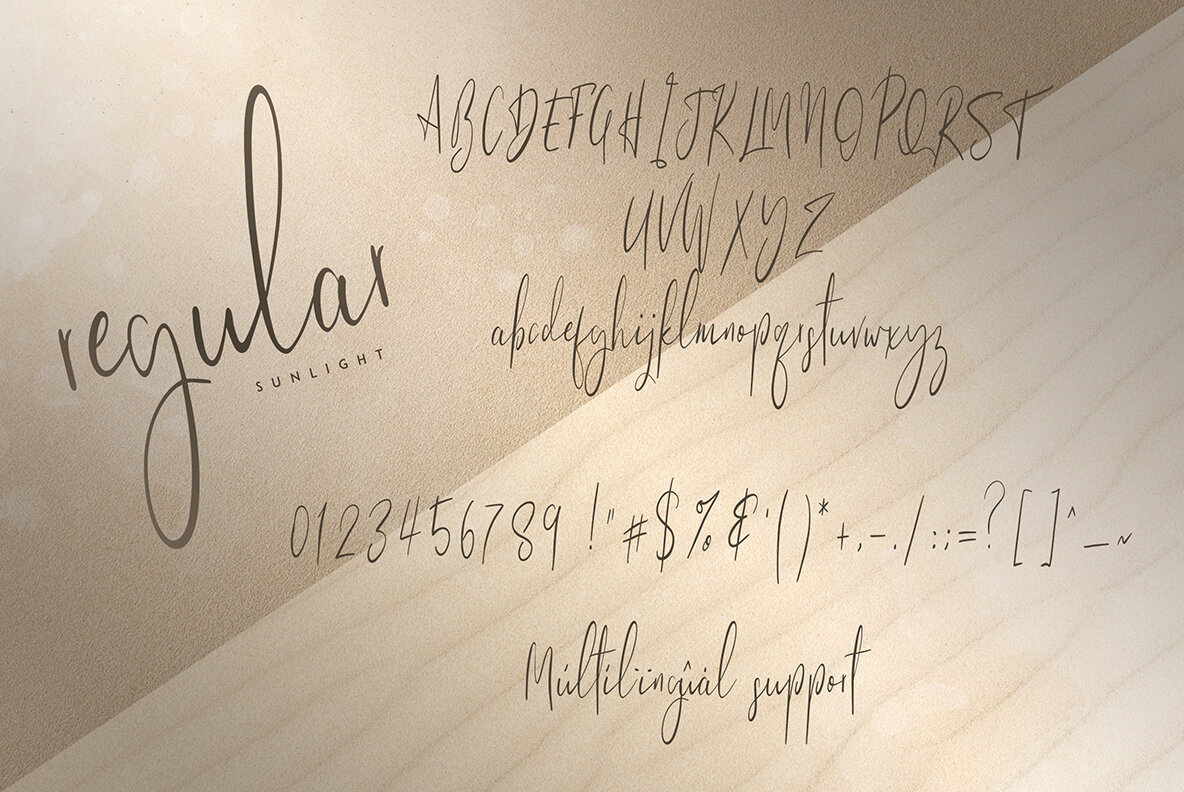 regular
SUNLIGHT
ABCDEFGHIJKLMNOPQRST
UVWXYZ
abcdefghijklmnopqrstuvwxyz
0123456789 !"#$%&'()*+,-./:;=?[]^_~
Múltilïingîál support